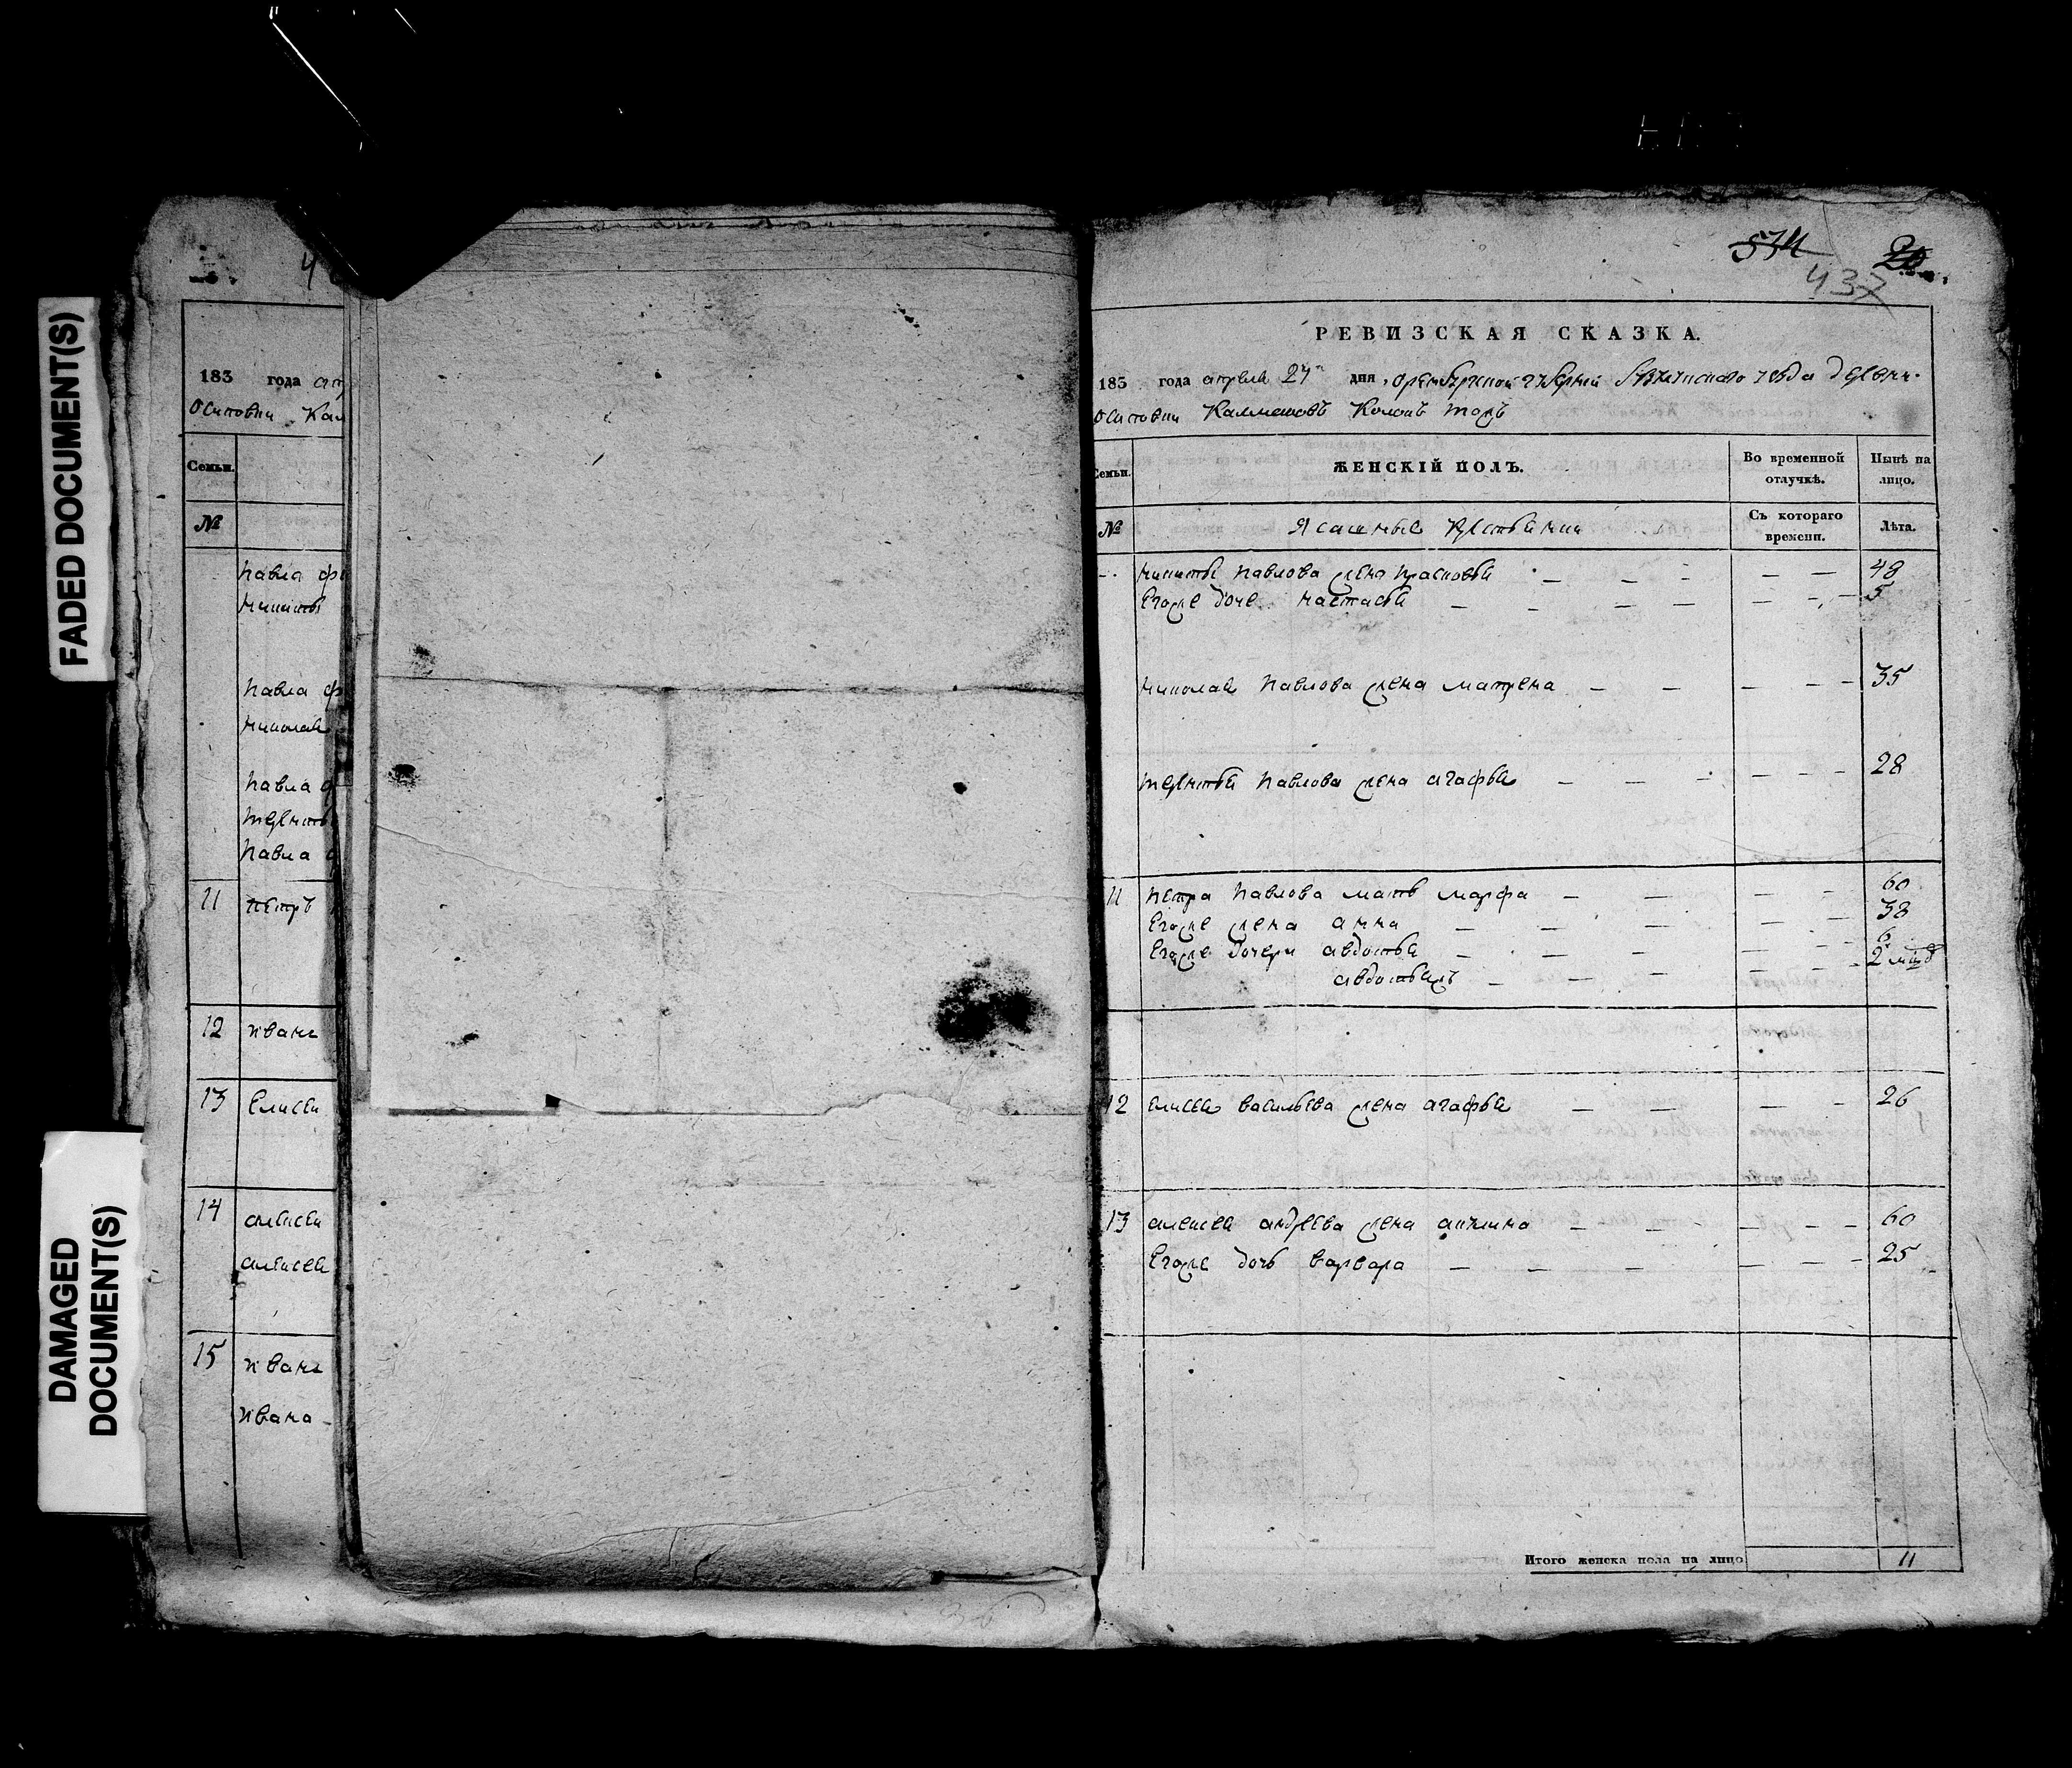 FADED DOCUMENT(S)
DAMAGED
DOCUMENT(S)
183 года ап
Осиповки Кал
Семьи.
№
Павла ф
Никиты
Павла ф
Николае
Павла
Терентьe
Павла
11 Петръ
12 Иванъ
13 Елисеи
14 Алексеи
Алексея
15 Иванъ
Ивана
574 20
437
РЕВИЗСКАЯ СКАЗКА.
183 года апреля 24 дня Оренбургской губернии уезда деревни
Осиповки Калмашовъ тожъ
Семьи. ЖЕНСКІЙ ПОЛЪ. Во временной отлучкѣ. Нынѣ на лицо.
№ Ясашные Крестьянки Съ котораго времени. Лѣта.
Никиты Павлова жена Прасковья 48
Егоже доче Настасья 5
Николая Павлова жена Матрена 35
Терентья Павлова жена Агафья 28
11 Петра Павлова мать Марфа 60
Егоже жена Анна 38
Егоже дочери Авдотья 6
Авдотьяжъ 2
12 Елисея Васильева жена Агафья 26
13 Алексея Андреева жена Акилина 60
Егоже дочь Варвара 25
Итого женска пола на лицо 11